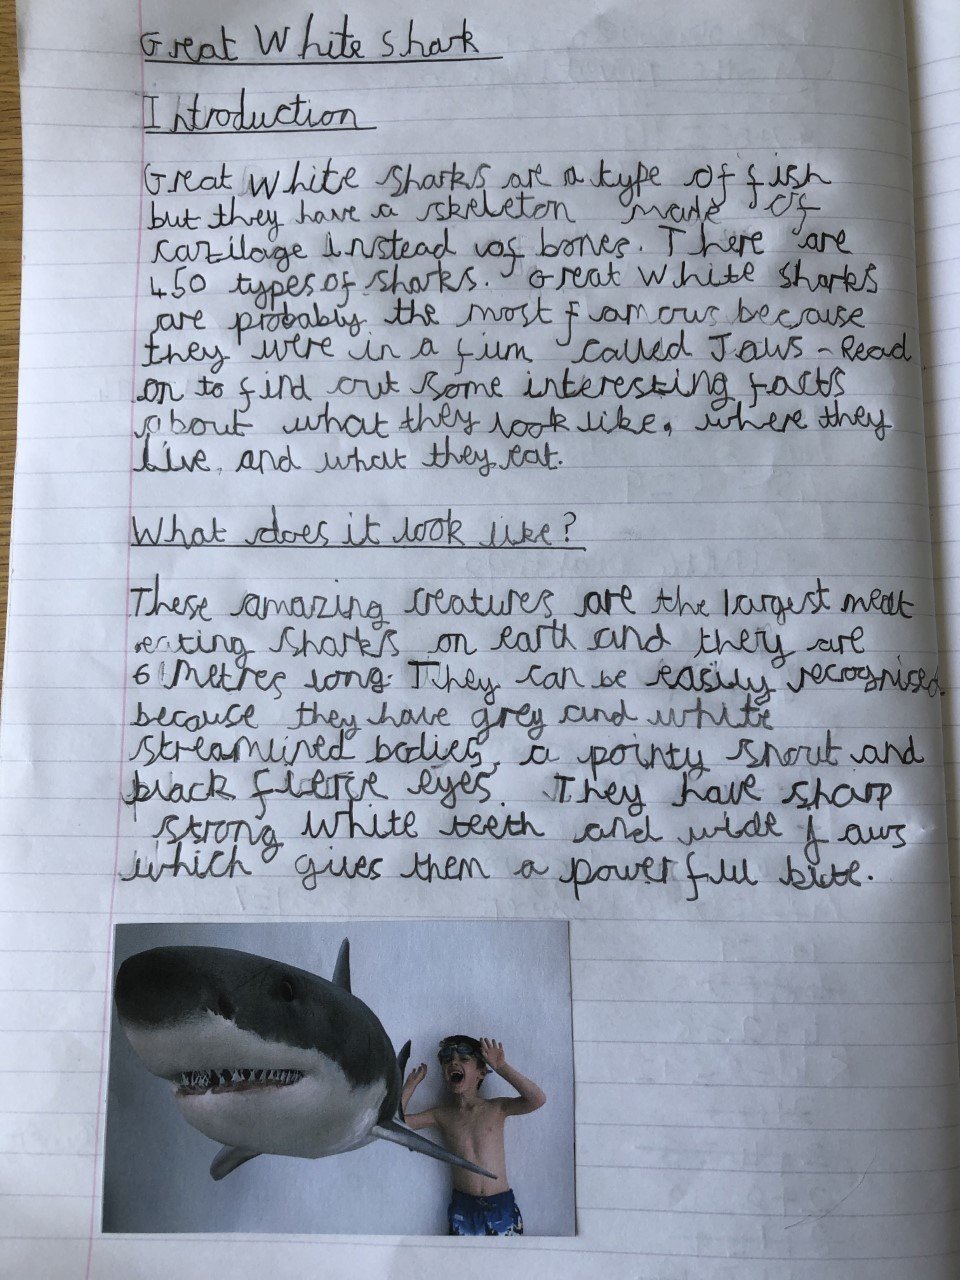 Great White Shark
Introduction
Great White sharks are a type of fish
but they have a skeleton made of
cartilage instead of bones. There are
450 types of sharks. Great White sharks
are probably the most famous because
they were in a film called Jaws - Read
on to find out some interesting facts
about what they look like, where they
live, and what they eat.
What does it look like?
These amazing creatures are the largest meat
eating sharks on earth and they are
6 Metres long. They can be easily recognised
because they have grey and white
streamlined bodies, a pointy snout and
black fierce eyes. They have sharp
strong white teeth and wide jaws
which gives them a powerful bite.